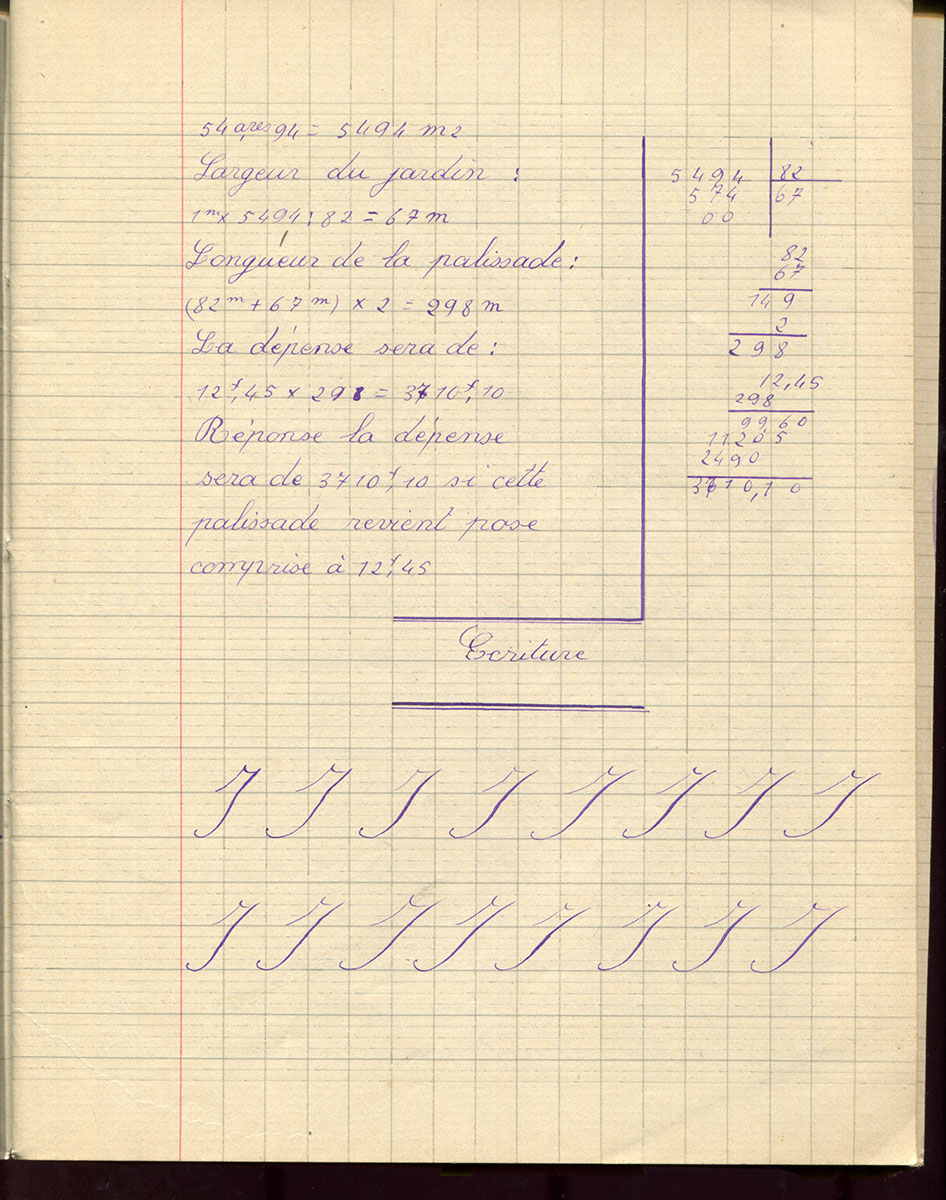 54 ares 94 = 5494 m2
Largeur du jardin :
1m x 5494 : 82 = 67 m
Longueur de la palissade :
(82m + 67m) x 2 = 298 m
La dépense sera de :
12f,45 x 298 = 3710f,10
Réponse la dépense
sera de 3710f,10 si cette
palissade revient pose
comprise à 12f,45
5494 82
574 67
00
82
67
149
2
298
12,45
298
9960
11205
2490
3710,10
Ecriture